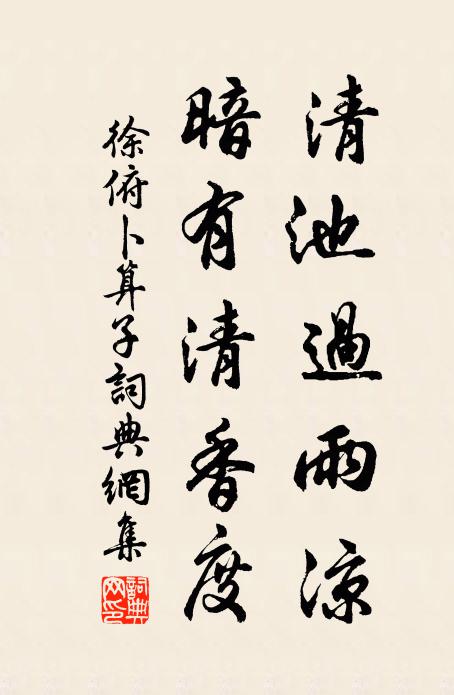 清池過雨涼
暗有清香度
徐俯卜算子詞典網集
詞典網印